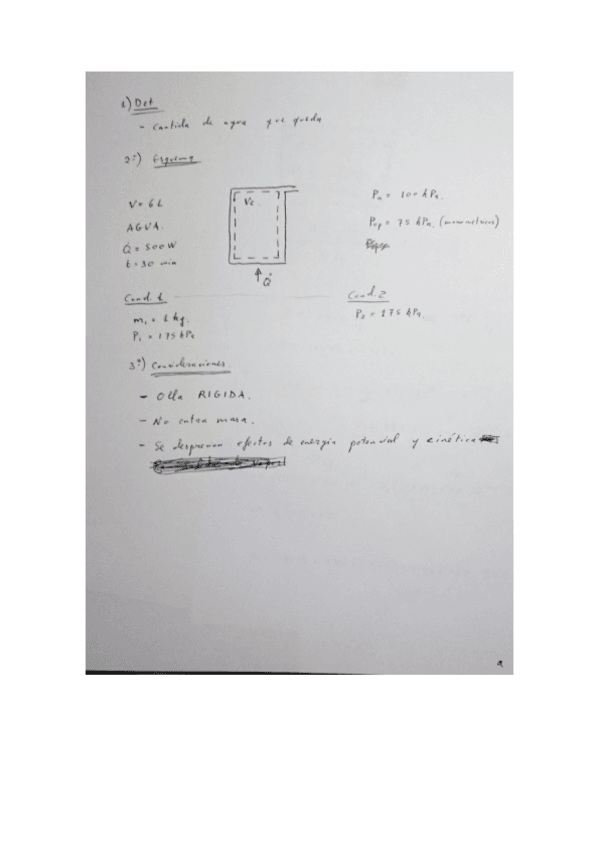 1) Det
- Cantida de agua que queda
2º) Esquema
V = 6 L
AGUA.
Q̇ = 500 W
t = 30 min
Vc.
Q̇
Pa = 100 kPa.
Pop = 75 kPa. (manometrica)
Cond. 1
m₁ = 1 kg.
P₁ = 175 kPa
Cond. 2
P₂ = 175 kPa.
3º) Consideraciones
- Olla RIGIDA.
- No entra masa.
- Se desprecian efectos de energia potencial y cinética